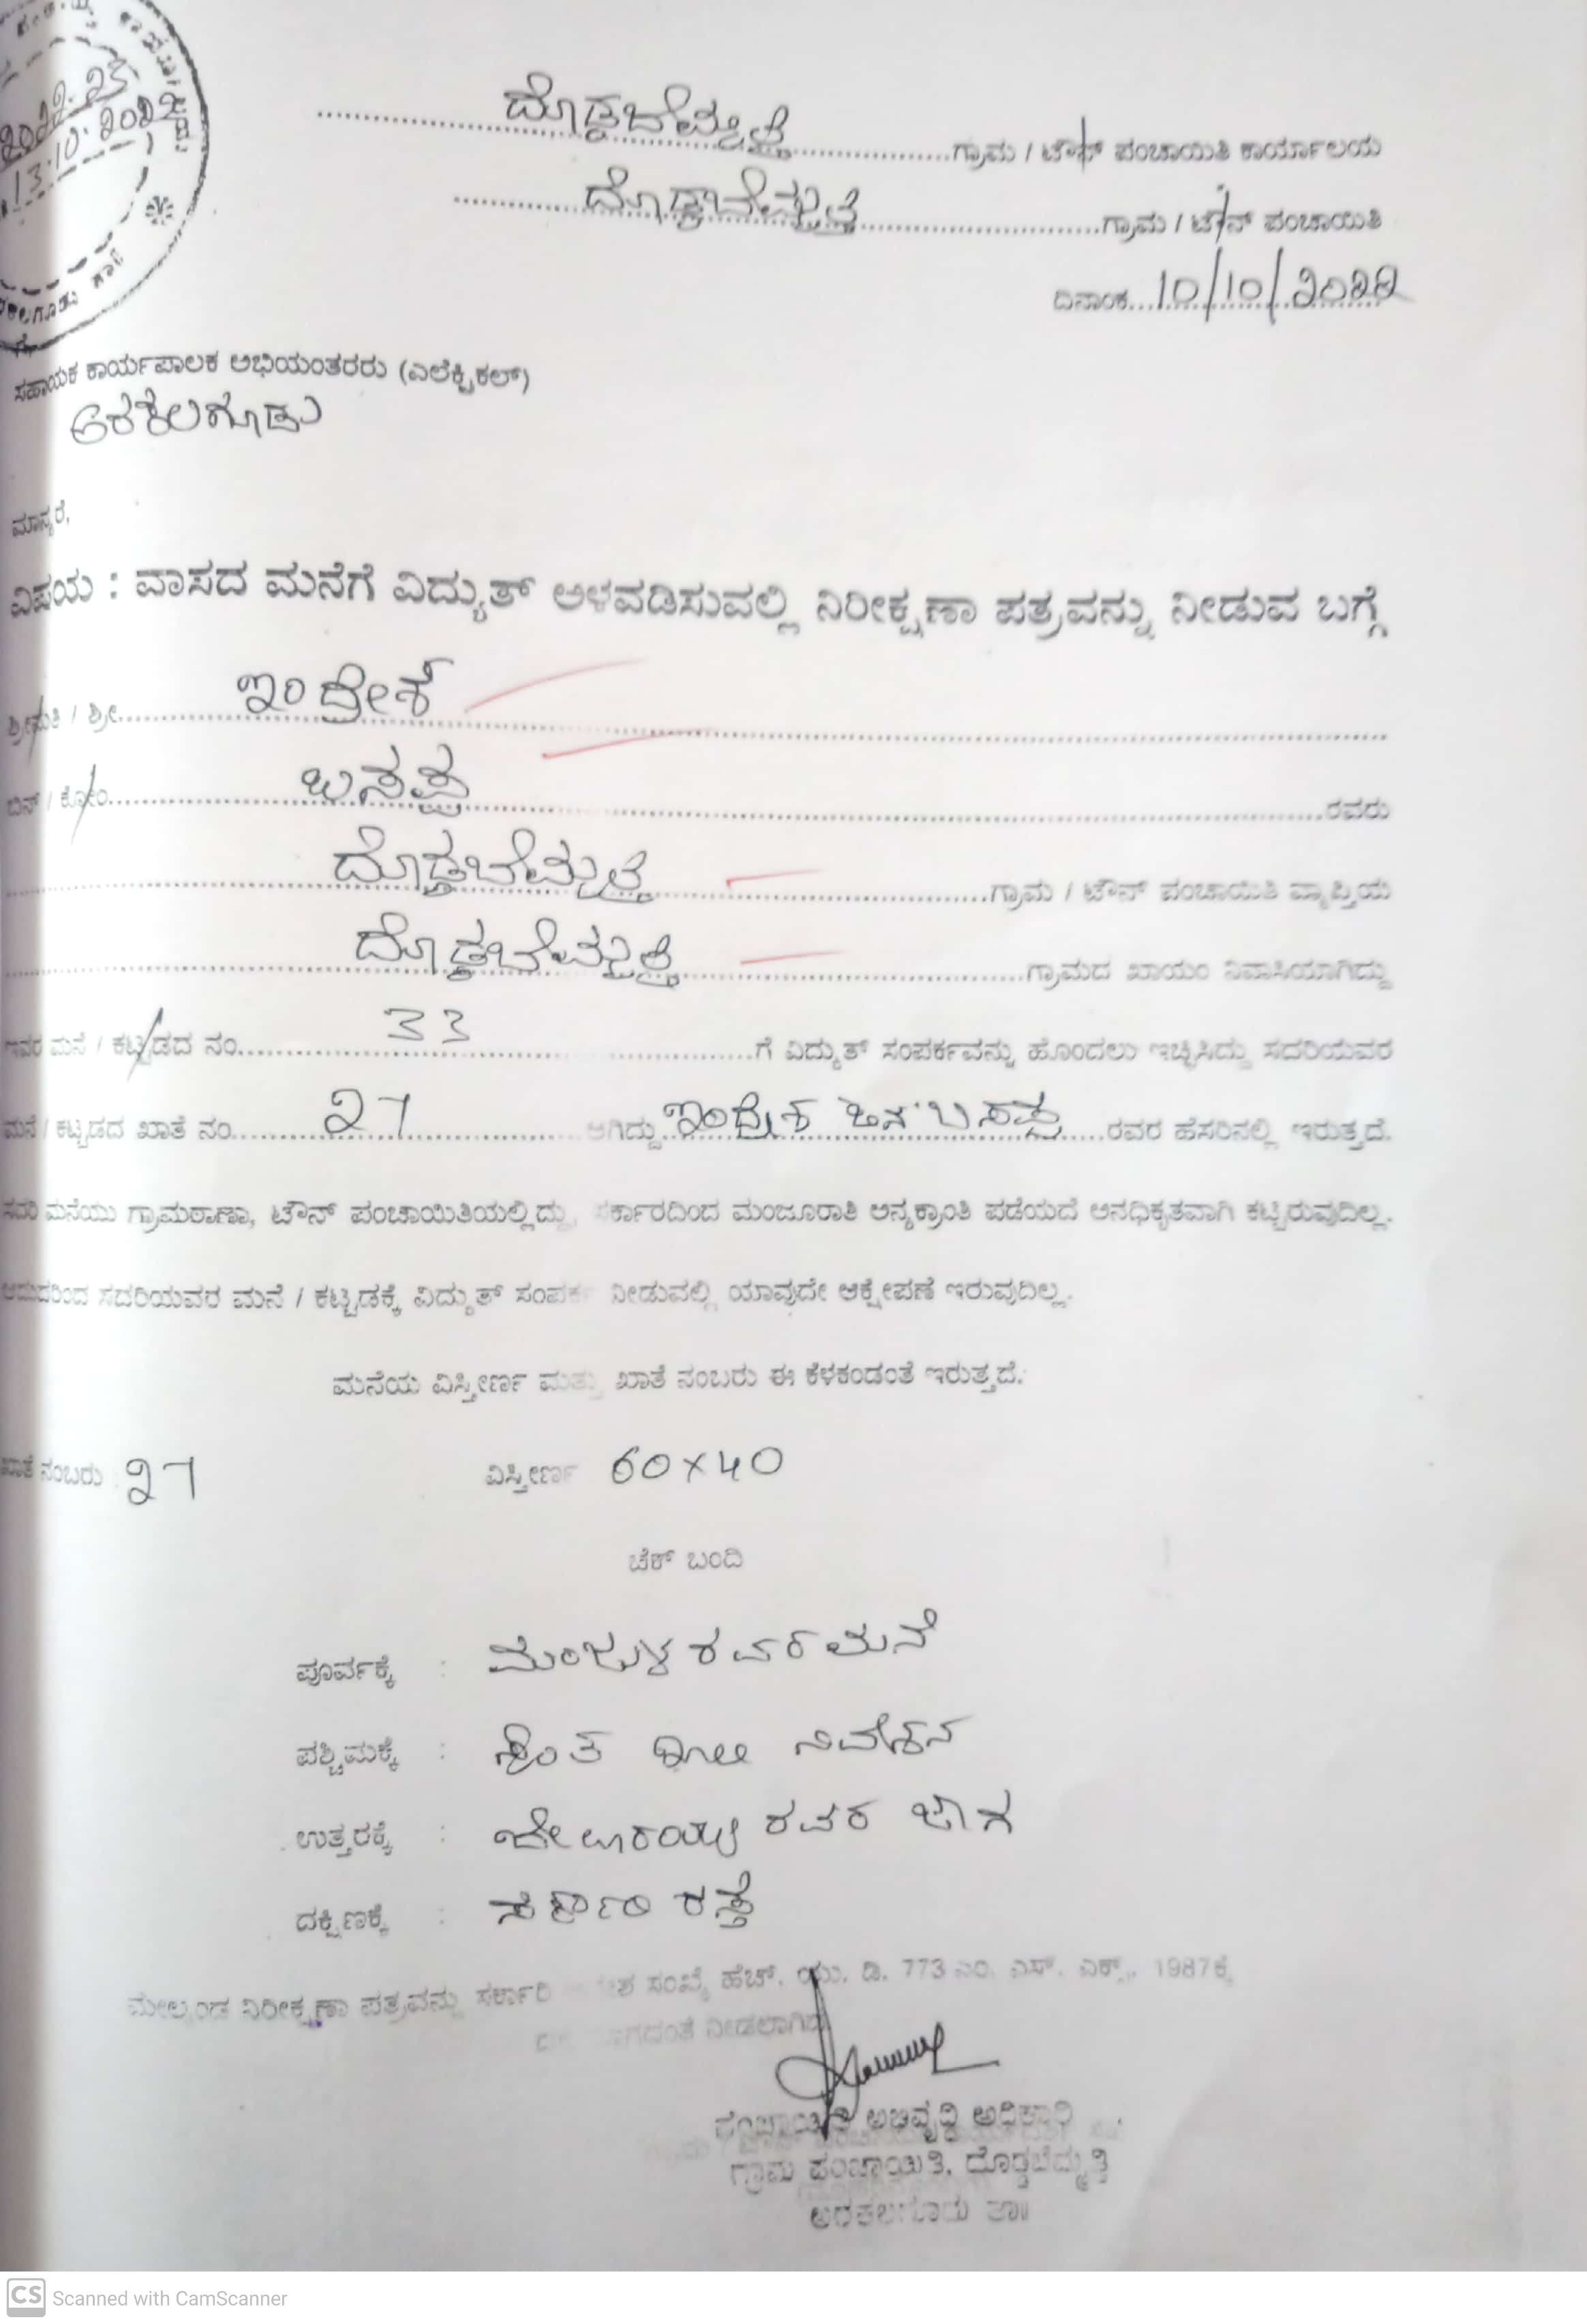 2022-23
13.10.2022
ದೊಡ್ಡಬೆಮ್ಮತ್ತಿ ಗ್ರಾಮ / ಟೌನ್ ಪಂಚಾಯಿತಿ ಕಾರ್ಯಾಲಯ
ದೊಡ್ಡಬೆಮ್ಮತ್ತಿ ಗ್ರಾಮ / ಟೌನ್ ಪಂಚಾಯಿತಿ
ದಿನಾಂಕ...10/10/2022
ಸಹಾಯಕ ಕಾರ್ಯಪಾಲಕ ಅಭಿಯಂತರರು (ಎಲೆಕ್ಟ್ರಿಕಲ್)
ಅರಕಲಗೂಡು
ಮಾನ್ಯರೆ,
ವಿಷಯ : ವಾಸದ ಮನೆಗೆ ವಿದ್ಯುತ್ ಅಳವಡಿಸುವಲ್ಲಿ ನಿರೀಕ್ಷಣಾ ಪತ್ರವನ್ನು ನೀಡುವ ಬಗ್ಗೆ
ಶ್ರೀಮತಿ / ಶ್ರೀ. ಇಂದ್ರೇಶ
ಬಿನ್ / ಕೋಂ. ಬಸಪ್ಪ ರವರು
ದೊಡ್ಡಬೆಮ್ಮತ್ತಿ ಗ್ರಾಮ / ಟೌನ್ ಪಂಚಾಯಿತಿ ವ್ಯಾಪ್ತಿಯ
ದೊಡ್ಡಬೆಮ್ಮತ್ತಿ ಗ್ರಾಮದ ಖಾಯಂ ನಿವಾಸಿಯಾಗಿದ್ದು
ಇವರ ಮನೆ / ಕಟ್ಟಡದ ನಂ. 33 ಗೆ ವಿದ್ಯುತ್ ಸಂಪರ್ಕವನ್ನು ಹೊಂದಲು ಇಚ್ಛಿಸಿದ್ದು ಸದರಿಯವರ
ಮನೆ / ಕಟ್ಟಡದ ಖಾತೆ ನಂ. 27 ಆಗಿದ್ದು ಇಂದ್ರೇಶ ಬಿನ್ ಬಸಪ್ಪ ರವರ ಹೆಸರಿನಲ್ಲಿ ಇರುತ್ತದೆ.
ಸದರಿ ಮನೆಯು ಗ್ರಾಮಠಾಣಾ, ಟೌನ್ ಪಂಚಾಯಿತಿಯಲ್ಲಿದ್ದು, ಸರ್ಕಾರದಿಂದ ಮಂಜೂರಾತಿ ಅನ್ಯಕ್ರಾಂತಿ ಪಡೆಯದೆ ಅನಧಿಕೃತವಾಗಿ ಕಟ್ಟಿರುವುದಿಲ್ಲ.
ಆದುದರಿಂದ ಸದರಿಯವರ ಮನೆ / ಕಟ್ಟಡಕ್ಕೆ ವಿದ್ಯುತ್ ಸಂಪರ್ಕ ನೀಡುವಲ್ಲಿ ಯಾವುದೇ ಆಕ್ಷೇಪಣೆ ಇರುವುದಿಲ್ಲ.
ಮನೆಯ ವಿಸ್ತೀರ್ಣ ಮತ್ತು ಖಾತೆ ನಂಬರು ಈ ಕೆಳಕಂಡಂತೆ ಇರುತ್ತದೆ.
ಖಾತೆ ನಂಬರು : 27 ವಿಸ್ತೀರ್ಣ 60×40
ಚೆಕ್ ಬಂದಿ
ಪೂರ್ವಕ್ಕೆ : ಮಂಜುಳ ರವರ ಮನೆ
ಪಶ್ಚಿಮಕ್ಕೆ : ಸ್ವಂತ ಖಾಲಿ ನಿವೇಶನ
ಉತ್ತರಕ್ಕೆ : ರವರ ಜಾಗ
ದಕ್ಷಿಣಕ್ಕೆ : ಸರ್ಕಾರಿ ರಸ್ತೆ
ಮೇಲ್ಕಂಡ ನಿರೀಕ್ಷಣಾ ಪತ್ರವನ್ನು ಸರ್ಕಾರಿ ಸಂಖ್ಯೆ ಹೆಚ್. ಯು. ಡಿ. 773 ಎಂ. ಎಸ್. ಎಕ್ಸ್. 1987ಕ್ಕೆ
ನೀಡಲಾಗಿದೆ
ಪಂಚಾಯಿತಿ ಅಭಿವೃದ್ಧಿ ಅಧಿಕಾರಿ
ಗ್ರಾಮ ಪಂಚಾಯಿತಿ, ದೊಡ್ಡಬೆಮ್ಮತ್ತಿ
ಅರಕಲಗೂಡು ತಾ॥
CS Scanned with CamScanner